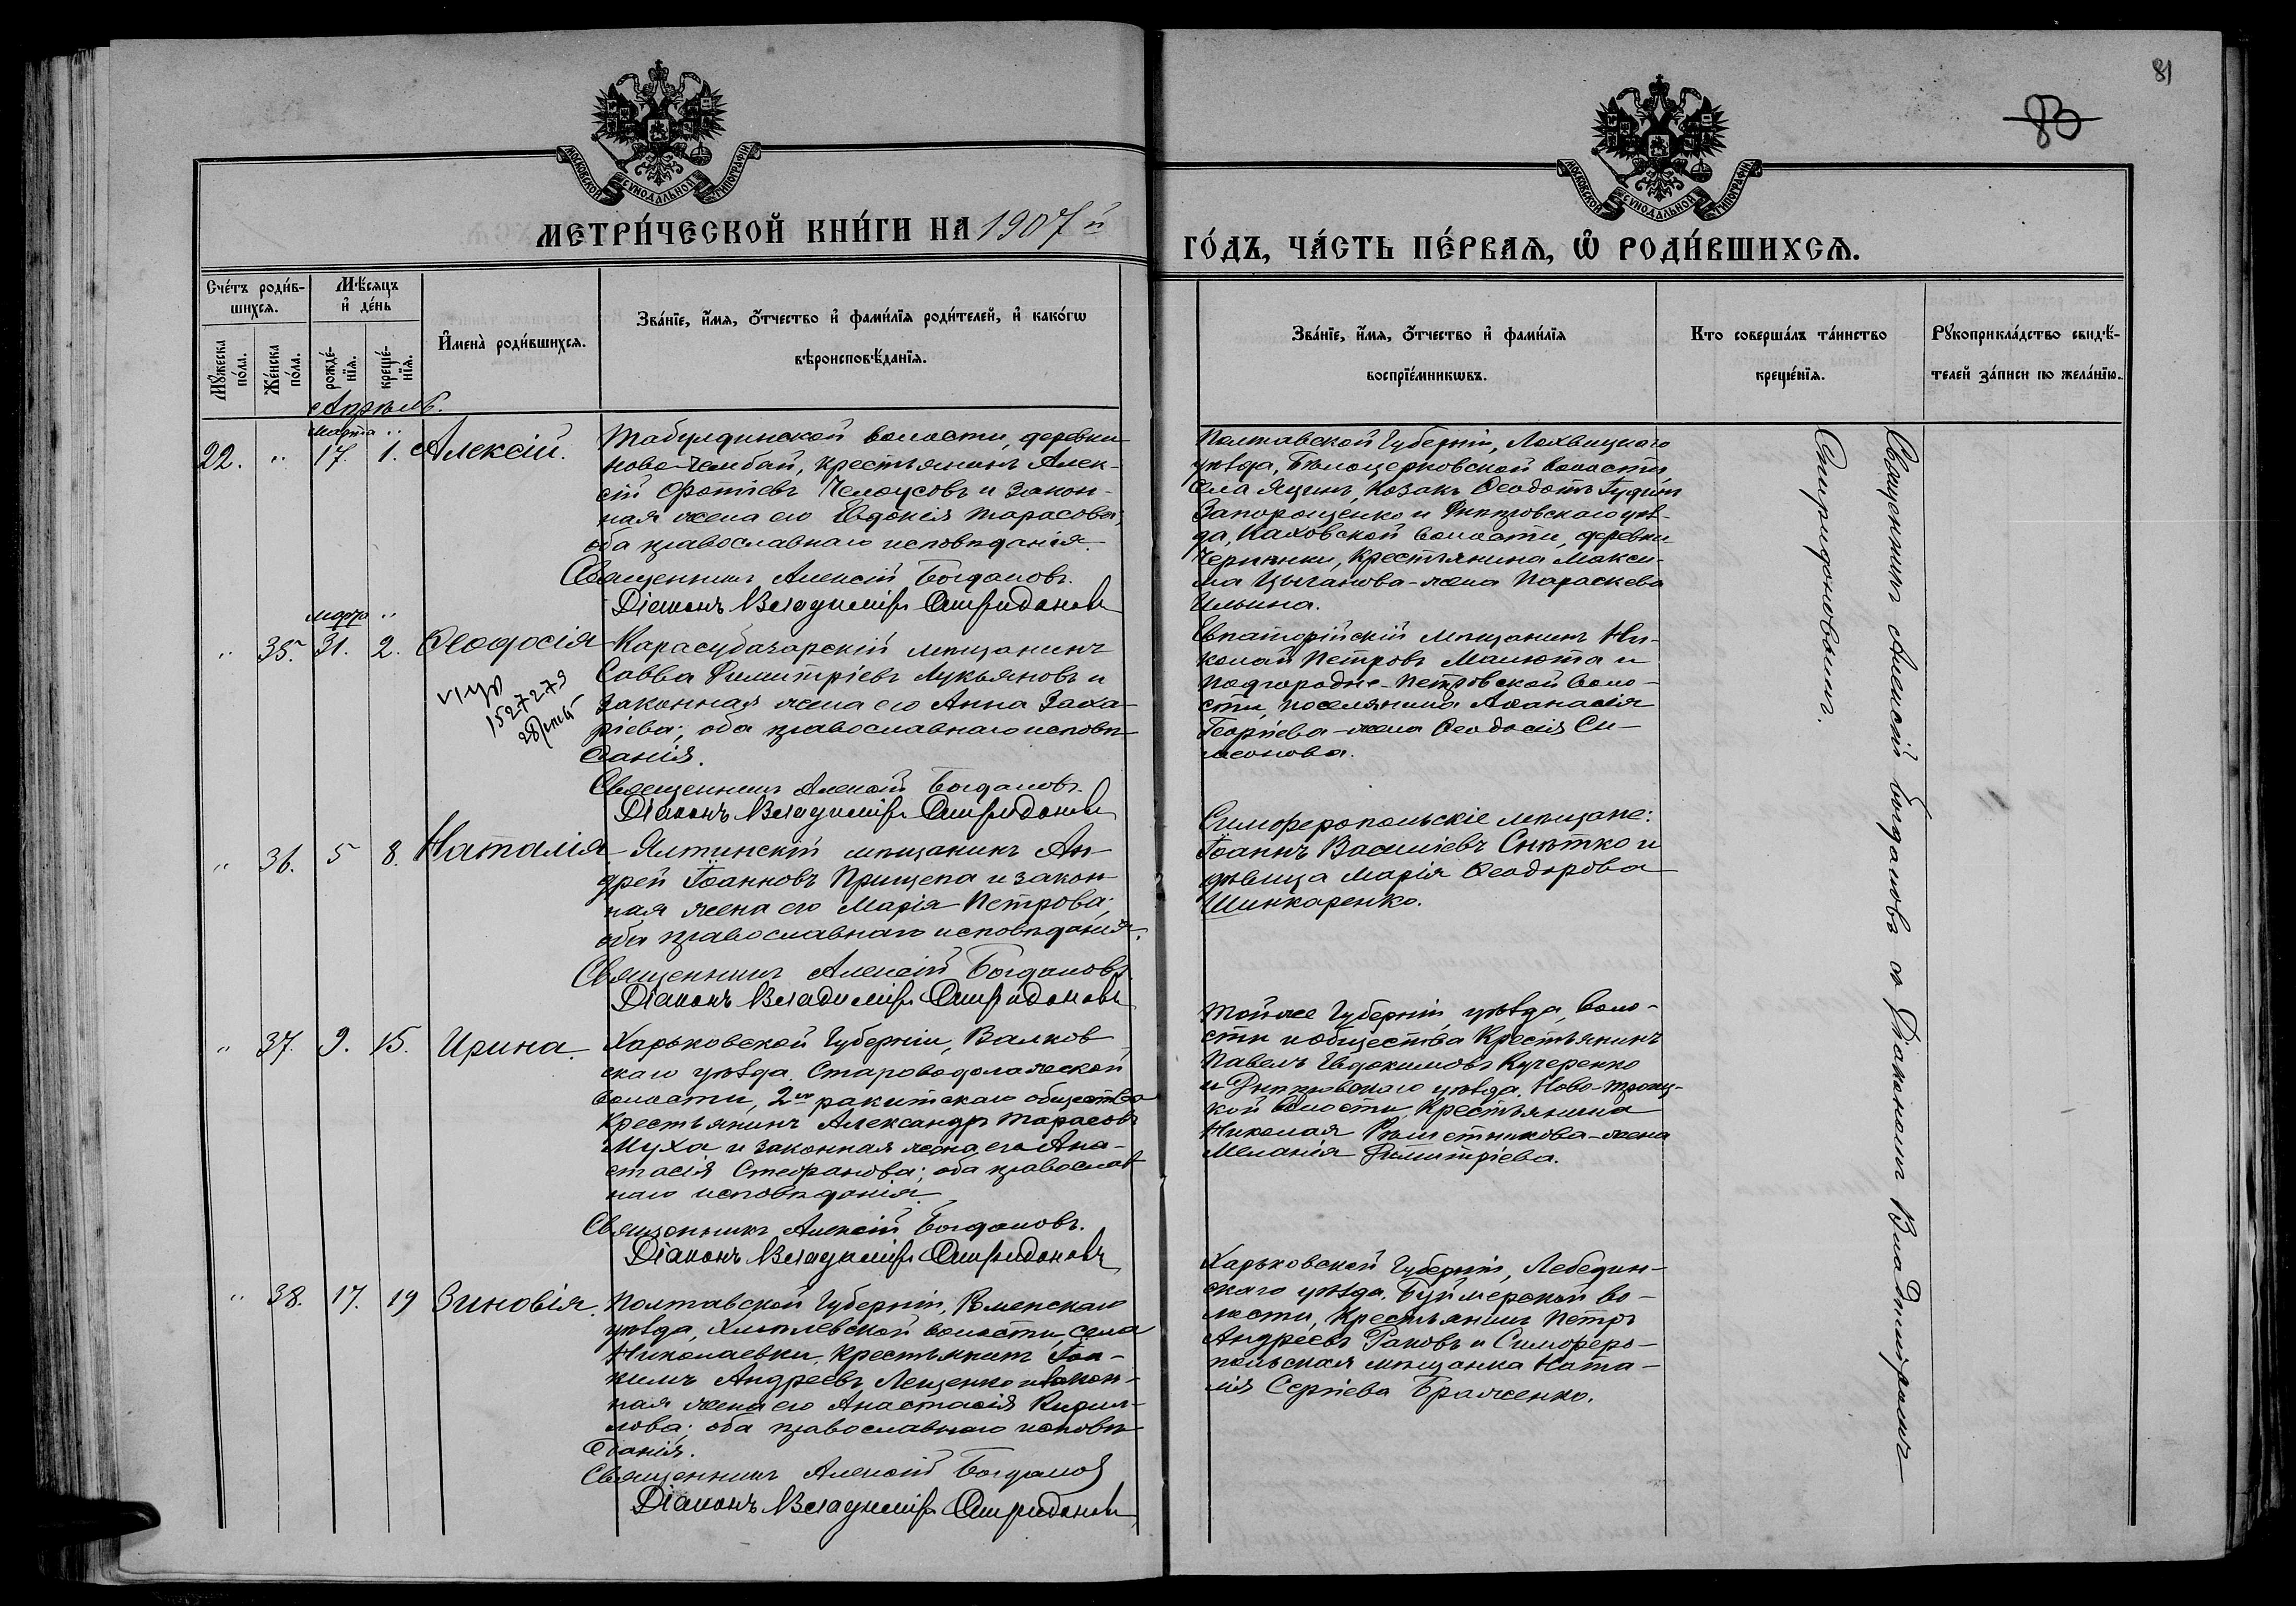 81
83
МОСКОВСКОЙ СѴНОДАЛЬНОЙ ТИПОГРАФІИ
МОСКОВСКОЙ СѴНОДАЛЬНОЙ ТИПОГРАФІИ
МЕТРИ́ЧЕСКОЙ КНИ́ГИ НА 1907 й
ГО́ДЪ, ЧА́СТЬ ПЕ́РВАѦ, Ѿ РОДИ́ВШИХСѦ.
Сче́тъ роди́в-
шихсѧ.
Мꙋ́жеска по́ла.
Же́нска по́ла.
Мѣ́сѧцъ и҆ де́нь
рожде́-
нїѧ.
креще́-
нїѧ.
И҆мена̀ роди́вшихсѧ.
Зва́нїе, и҆́мѧ, ѻ҆́тчество и҆ фами́лїѧ роди́телей, и҆ како́гѡ
вѣроисповѣ́данїѧ.
Зва́нїе, и҆́мѧ, ѻ҆́тчество и҆ фами́лїѧ
воспрїе́мникѡвъ.
Кто соверша́лъ та́инство
креще́нїѧ.
Рꙋкоприкла́дство свидѣ́-
телей за́писи по жела́нїю.
Апрѣль.
марта "
22. " 17. 1. Алексій.
Табулдинской волости, деревни
Ново-Чембай, крестьянинъ Алек-
сій Фотіевъ Челоусовъ и закон-
ная жена его Евдокія Тарасова;
оба православнаго исповѣданія.
Священникъ Алексій Богдановъ.
Діаконъ Владиміръ Спиридоновъ
Полтавской Губерніи, Лохвицкаго
уѣзда, Бѣлоцерковской волости
села Яцинъ, козакъ Ѳеодотъ
Запорощенко и Днѣпровскаго уѣз-
да, Каховской волости, деревни
Чернянки, крестьянина Макси-
ма Цыганова-жена Параскева
Ильина.
марта "
" 35. 31. 2. Ѳеодосія
1527279
Карасубазарскій мѣщанинъ
Савва Димитріевъ Лукьяновъ и
законная жена его Анна Заха-
ріева; оба православнаго исповѣ-
данія.
Священникъ Алексій Богдановъ.
Діаконъ Владиміръ Спиридоновъ
Евпаторійскій мѣщанинъ Ни-
колай Петровъ Малюта и
Подгородне-Петровской воло-
сти, поселянина Аѳанасія
Георгіева-жена Ѳеодосія Си-
меонова.
" 36. 5 8. Наталія
Ялтинскій мѣщанинъ Ан-
дрей Іоанновъ Прищепа и закон-
ная жена его Марія Петрова;
оба православнаго исповѣданія.
Священникъ Алексій Богдановъ.
Діаконъ Владиміръ Спиридоновъ
Симферопольскіе мѣщане:
Іоаннъ Василіевъ Снѣтко и
дѣвица Марія Ѳеодорова
Шинкаренко.
" 37. 9. 15. Ирина.
Харьковской Губерніи, Валков-
скаго уѣзда, Староводолажской
волости, 2го ракитскаго общества
крестьянинъ Александръ Тарасовъ
Муха и законная жена его Ана-
стасія Стефанова; оба православ-
наго исповѣданія.
Священникъ Алексій Богдановъ.
Діаконъ Владиміръ Спиридоновъ
Той же Губерніи, уѣзда, воло-
сти и общества крестьянинъ
Павелъ Евдокимовъ Кучеренко
и Днѣпровскаго уѣзда, Ново-Троиц-
кой волости, крестьянина
Николая Рѣшетникова-жена
Меланія Димитріева.
" 38. 17. 19 Зиновія.
Полтавской Губерніи, Роменскаго
уѣзда, Хмѣлевской волости, села
Николаевки, крестьянинъ Іоа-
кимъ Андреевъ Лещенко и закон-
ная жена его Анастасія Кирил-
лова; оба православнаго исповѣ-
данія.
Священникъ Алексій Богдановъ
Діаконъ Владиміръ Спиридоновъ
Харьковской Губерніи, Лебедин-
скаго уѣзда, Буймерской во-
лости, крестьянинъ Петръ
Андреевъ Раковъ и Симферо-
польская мѣщанка Ната-
лія Сергіева Браженко.
Священникъ Алексій Богдановъ съ Діакономъ Владиміромъ
Спиридоновымъ.